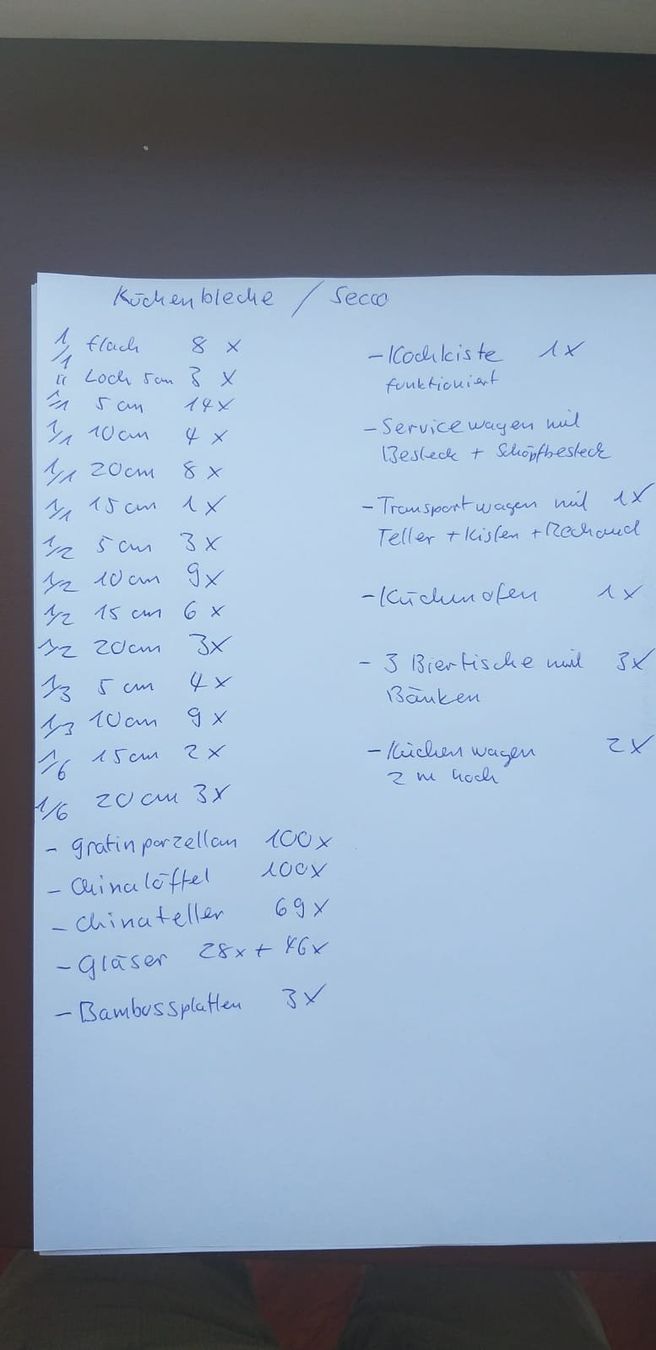 Küchenbleche / Secco
1/1 flach 8 x
" Loch 5cm 3 x
1/1 5 cm 14x
1/1 10cm 4 x
1/1 20cm 8 x
1/1 15 cm 1 x
1/2 5 cm 3 x
1/2 10 cm 9x
1/2 15 cm 6 x
1/2 20cm 3x
1/3 5 cm 4 x
1/3 10cm 9 x
1/6 15cm 2 x
1/6 20 cm 3x
- gratinporzellan 100x
- Chinalöffel 100x
- Chinateller 69x
- Gläser 28x + 46x
- Bambusplatten 3x
- Kochkiste 1x
funktioniert
- Servicewagen mit
Besteck + Schöpfbesteck
- Transportwagen mit 1x
Teller + Kisten + Rechaud
- Küchenofen 1x
- 3 Biertische mit 3x
Bänken
- Küchenwagen 2x
2 m hoch